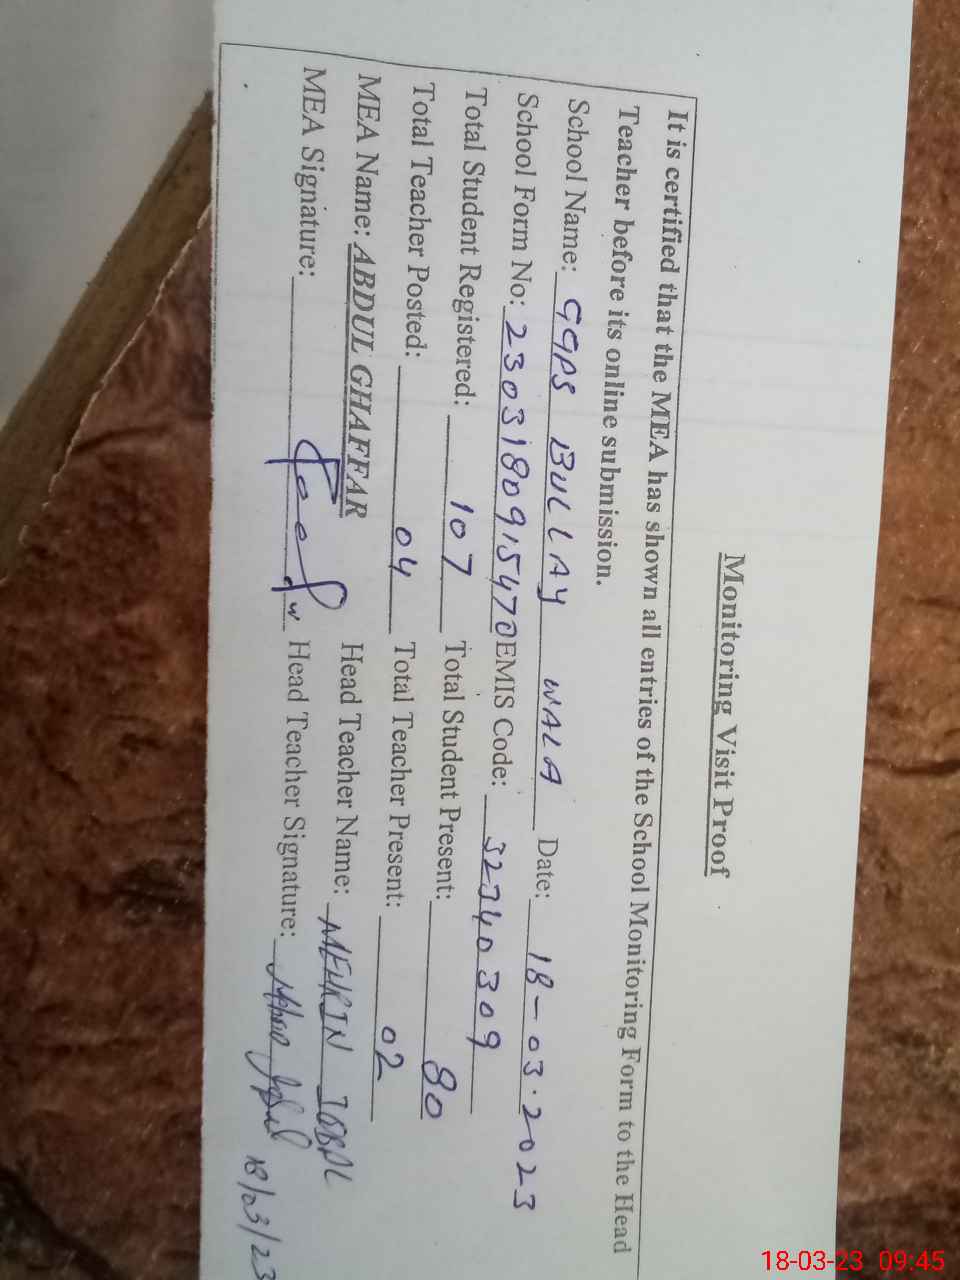 Monitoring Visit Proof
It is certified that the MEA has shown all entries of the School Monitoring Form to the Head
Teacher before its online submission.
School Name: GGPS BULLAY WALA Date: 18-03-2023
School Form No: 2303180915470 EMIS Code: 32340309
Total Student Registered: 107 Total Student Present: 80
Total Teacher Posted: 04 Total Teacher Present: 02
MEA Name: ABDUL GHAFFAR Head Teacher Name: MEHRIN IQBAL
MEA Signature: Head Teacher Signature:
18/03/23
18-03-23 09:45